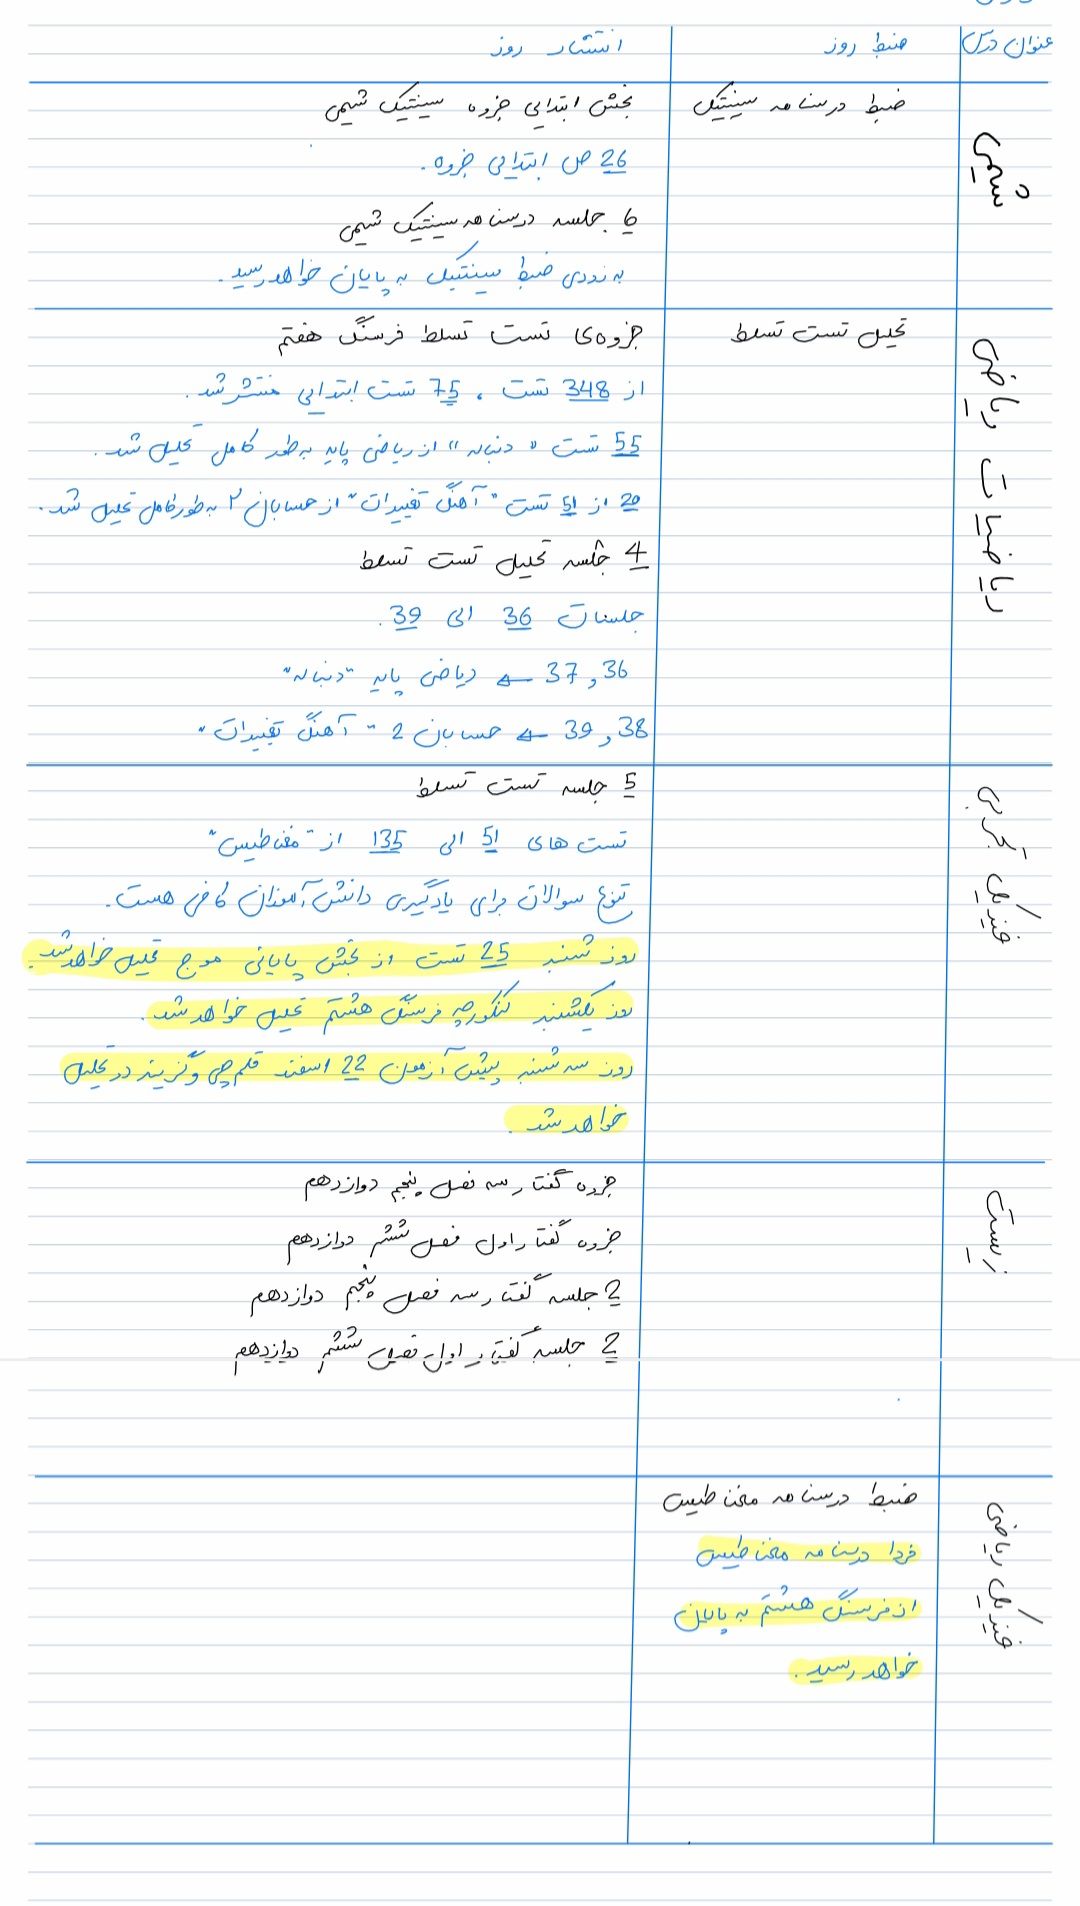 عنوان درس ضبط روز انتشار روز
شیمی
ضبط درسنامه سینتیک
بخش ابتدایی جزوه سینتیک شیمی
26 ص ابتدایی جزوه.
6 جلسه درسنامه سینتیک شیمی
به زودی ضبط سینتیک به پایان خواهد رسید.
ریاضیات ریاضی
تحلیل تست تسلط
جزوه‌ی تست تسلط فرسنگ هفتم
از 348 تست، 75 تست ابتدایی منتشر شد.
55 تست "دنباله" از ریاضی پایه به‌طور کامل تحلیل شد.
20 از 51 تست "آهنگ تغییرات" از حسابان ۲ به طور کامل تحلیل شد.
4 جلسه تحلیل تست تسلط
جلسات 36 الی 39.
36 و 37 ← ریاضی پایه "دنباله"
38 و 39 ← حسابان 2 - "آهنگ تغییرات"
فیزیک تجربی
5 جلسه تست تسلط
تست های 51 الی 135 از "مغناطیس"
تنوع سوالات برای یادگیری دانش آموزان کافی هست.
روز شنبه 25 تست از بخش پایانی موج تحلیل خواهد شد.
روز یکشنبه کنکورچه فرسنگ هشتم تحلیل خواهد شد.
روز سه شنبه پیش آزمون 22 اسفند قلم چی و گزینه دو تحلیل
خواهد شد.
زیست
جزوه گفتار سه فصل پنجم دوازدهم
جزوه گفتار اول فصل ششم دوازدهم
2 جلسه گفتار سه فصل پنجم دوازدهم
2 جلسه گفتار اول فصل ششم دوازدهم
فیزیک ریاضی
ضبط درسنامه مغناطیس
فردا درسنامه مغناطیس
از فرسنگ هشتم به پایان
خواهد رسید.